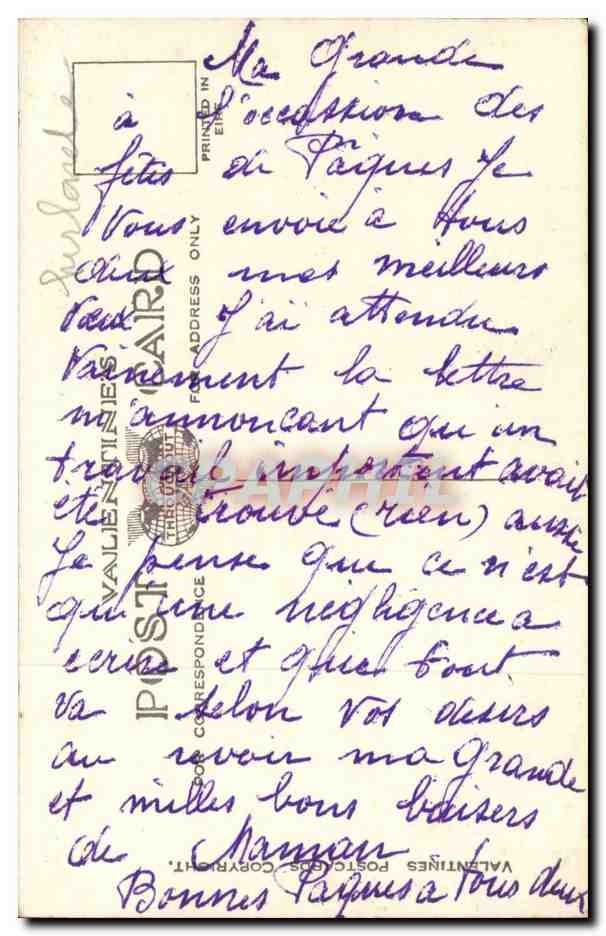 Ma Grande
à l'occassion des
fêtes de Pâques Je
Vous envoie à tous
deux mes meilleurs
Vœux J'ai attendu
Vainement la lettre
m'annonçant qu'un
travail important avait
ete trouvé (rien) aussi
Je pense que ce n'est
qu'une négligence a
ecrire et que tout
va selon vos desirs
au revoir ma Grande
et milles bons baisers
de Maman
Bonnes Paques a Tous deux
PRINTED IN
EIRE
VALENTINE'S
POST CARD
FOR CORRESPONDENCE
FOR ADDRESS ONLY
VALENTINES POSTCARDS COPYRIGHT.
CPAPHIL